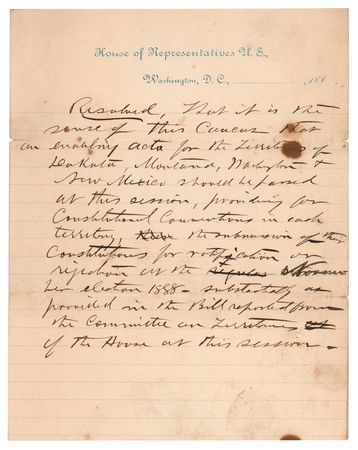 House of Representatives U. S.,
Washington, D. C., 188
Resolved, That it is the
sense of this Caucus that
an enabling acts for the Territories of
Dakota, Montana, Washington &
New Mexico should be passed
at this session, providing for
Constitutional Conventions in each
territory, the submission of their
Constitutions for ratification or
rejection at the Novem
ber election 1888 - substantially as
provided in the Bill reported from
the Committee on Territories
of the House at this session -